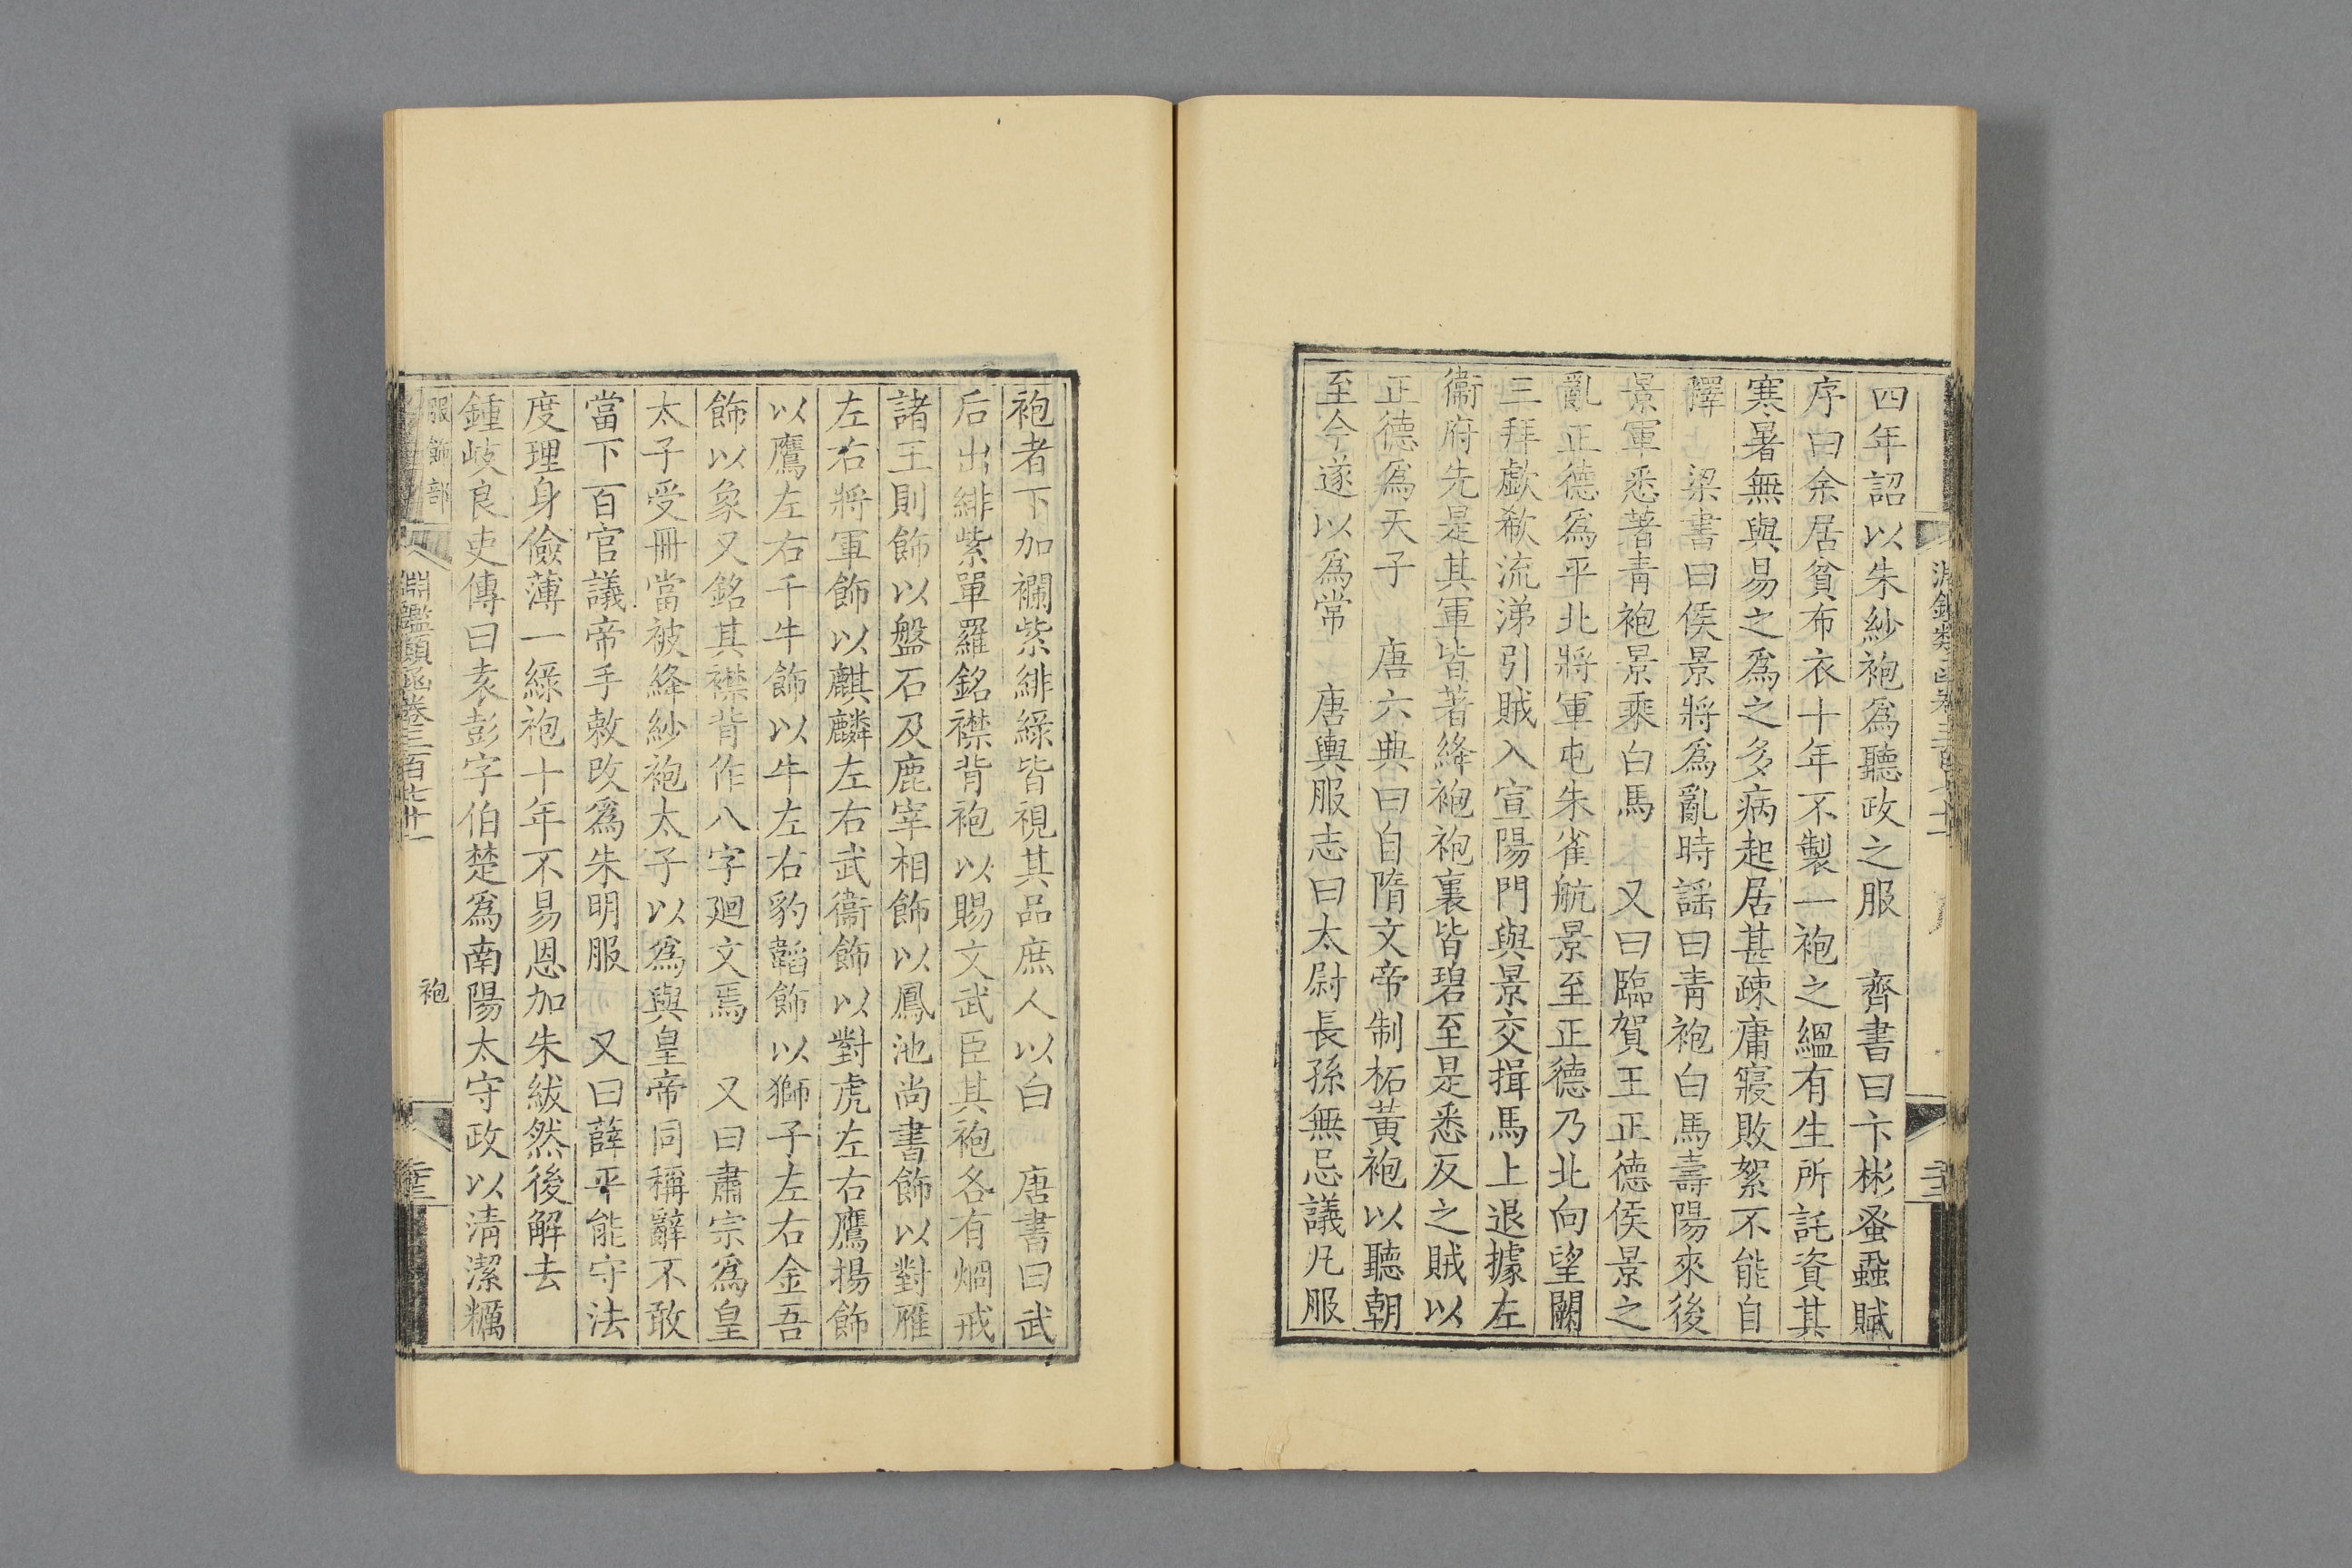 四年詔以朱紗袍爲聽政之服　齊書曰卞彬蚤蝨賦
序曰余居貧布衣十年不製一袍之縕有生所託資其
寒暑無與易之爲之多病起居甚疎庸寢敗絮不能自
釋　梁書曰侯景將爲亂時謡曰青袍白馬壽陽來後
景軍悉著青袍景乘白馬　又曰臨賀王正德侯景之
亂正德爲平北將軍屯朱雀航景至正德乃北向望闕
三拜歔欷流涕引賊入宣陽門與景交揖馬上退據左
衞府先是其軍皆著絳袍袍裏皆碧至是悉反之賊以
正德爲天子　唐六典曰自隋文帝制柘黃袍以聽朝
至今遂以爲常　唐輿服志曰太尉長孫無忌議凡服
袍者下加襴紫緋綠皆視其品庶人以白　唐書曰武
后出緋紫單羅銘襟背袍以賜文武臣其袍各有烱戒
諸王則飾以盤石及鹿宰相飾以鳳池尚書飾以對雁
左右將軍飾以麒麟左右武衞飾以對虎左右鷹揚飾
以鷹左右千牛飾以牛左右豹韜飾以獅子左右金吾
飾以象又銘其襟背作八字廻文焉　又曰肅宗爲皇
太子受冊當被絳紗袍太子以爲與皇帝同稱辭不敢
當下百官議帝手敕改爲朱明服　又曰薛平能守法
度理身儉薄一綠袍十年不易恩加朱紱然後解去
鍾岐良吏傳曰袁彭字伯楚爲南陽太守政以清潔糲
服飾部
淵鑑類函卷三百七十一
袍